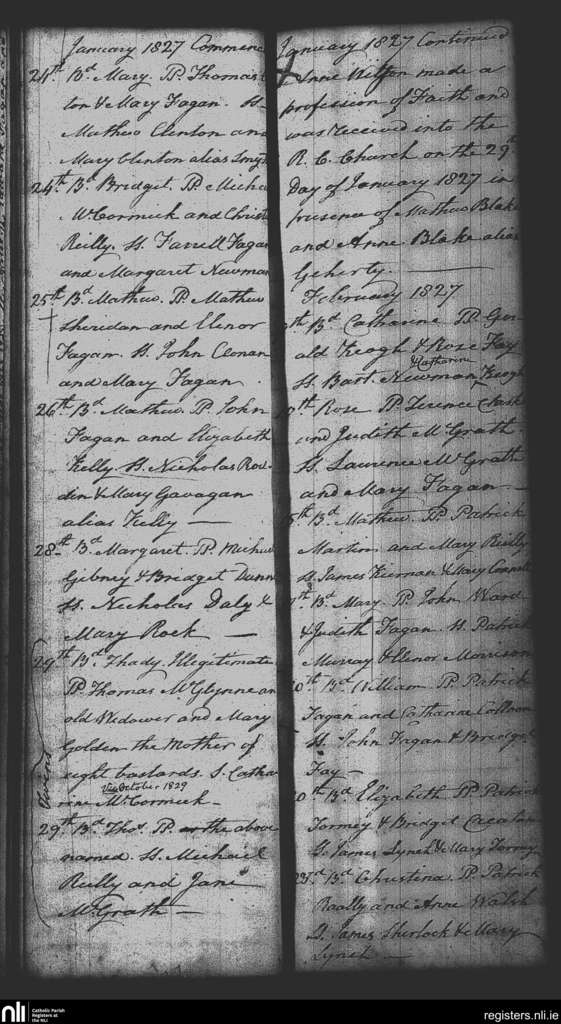 January 1827 Commenc
24th Bd Mary. PP. Thomas
ton & Mary Fagan. Ss
Mathew Clenton and
Mary Clenton alias Smyt
24th. Bd. Bridget. PP. Micha
McCormick and Christ
Reilly. Ss. Farrell Fagan
and Margaret Newman
25th Bd. Mathew. PP. Mathew
Sheridan and Elenor
Fagan. Ss. John
and Mary Fagan
26th Bd. Mathew. PP. John
Fagan and Elizabeth
Kelly Ss. Nicholas Ros-
den & Mary Gavagan
alias Kelly —
28th Bd. Margaret. PP. Michae
Gibney & Bridget Dunn
Ss. Nicholas Daly &
Mary Rock —
29th Bd. Thady. Illegitimate
PP. Thomas McGlynne an
old Widower and Mary
Golden the Mother of
eight bastards. S. Catha
Vide October 1829
rine McCormick —
29th Bd. Thos. PP. the above
named. Ss. Michael
Reilly and Jane
McGrath —
January 1827 Continued
Anne Wilson made a
profession of Faith and
was received into the
R. C. Church on the 29th
Day of January 1827 in
presence of Mathew Blak
and Anne Blake alias
Geherty. —
February 1827
th Bd. Catharine PP. Ger-
ald Keogh & Rose Fay
& Catharine
Ss. Bart. Newman Keogh
th Rose PP. Terence
and Judith McGrath
Ss. Laurence McGrath
and Mary Fagan. —
th Bd. Mathew. PP. Patrick
Martin and Mary Reilly
Ss. James Kiernan & Mary
th. Bd. Mary. PP. John Ward
& Judith Fagan. Ss. Patrick
Murray & Elenor Morrison
20th Bd. William PP. Patrick
Fagan and Catharine
Ss. John Fagan & Bridget
Fay —
20th Bd Elizabeth PP. Patrick
Tormey & Bridget
Ss. James Lynch & Mary Tormey
23rd Bd Christina. PP. Patrick
Raally and Anne Walsh
Ss. James Sherlock & Mary
Lynch —
nli
Catholic Parish
Registers at
the NLI
registers.nli.ie